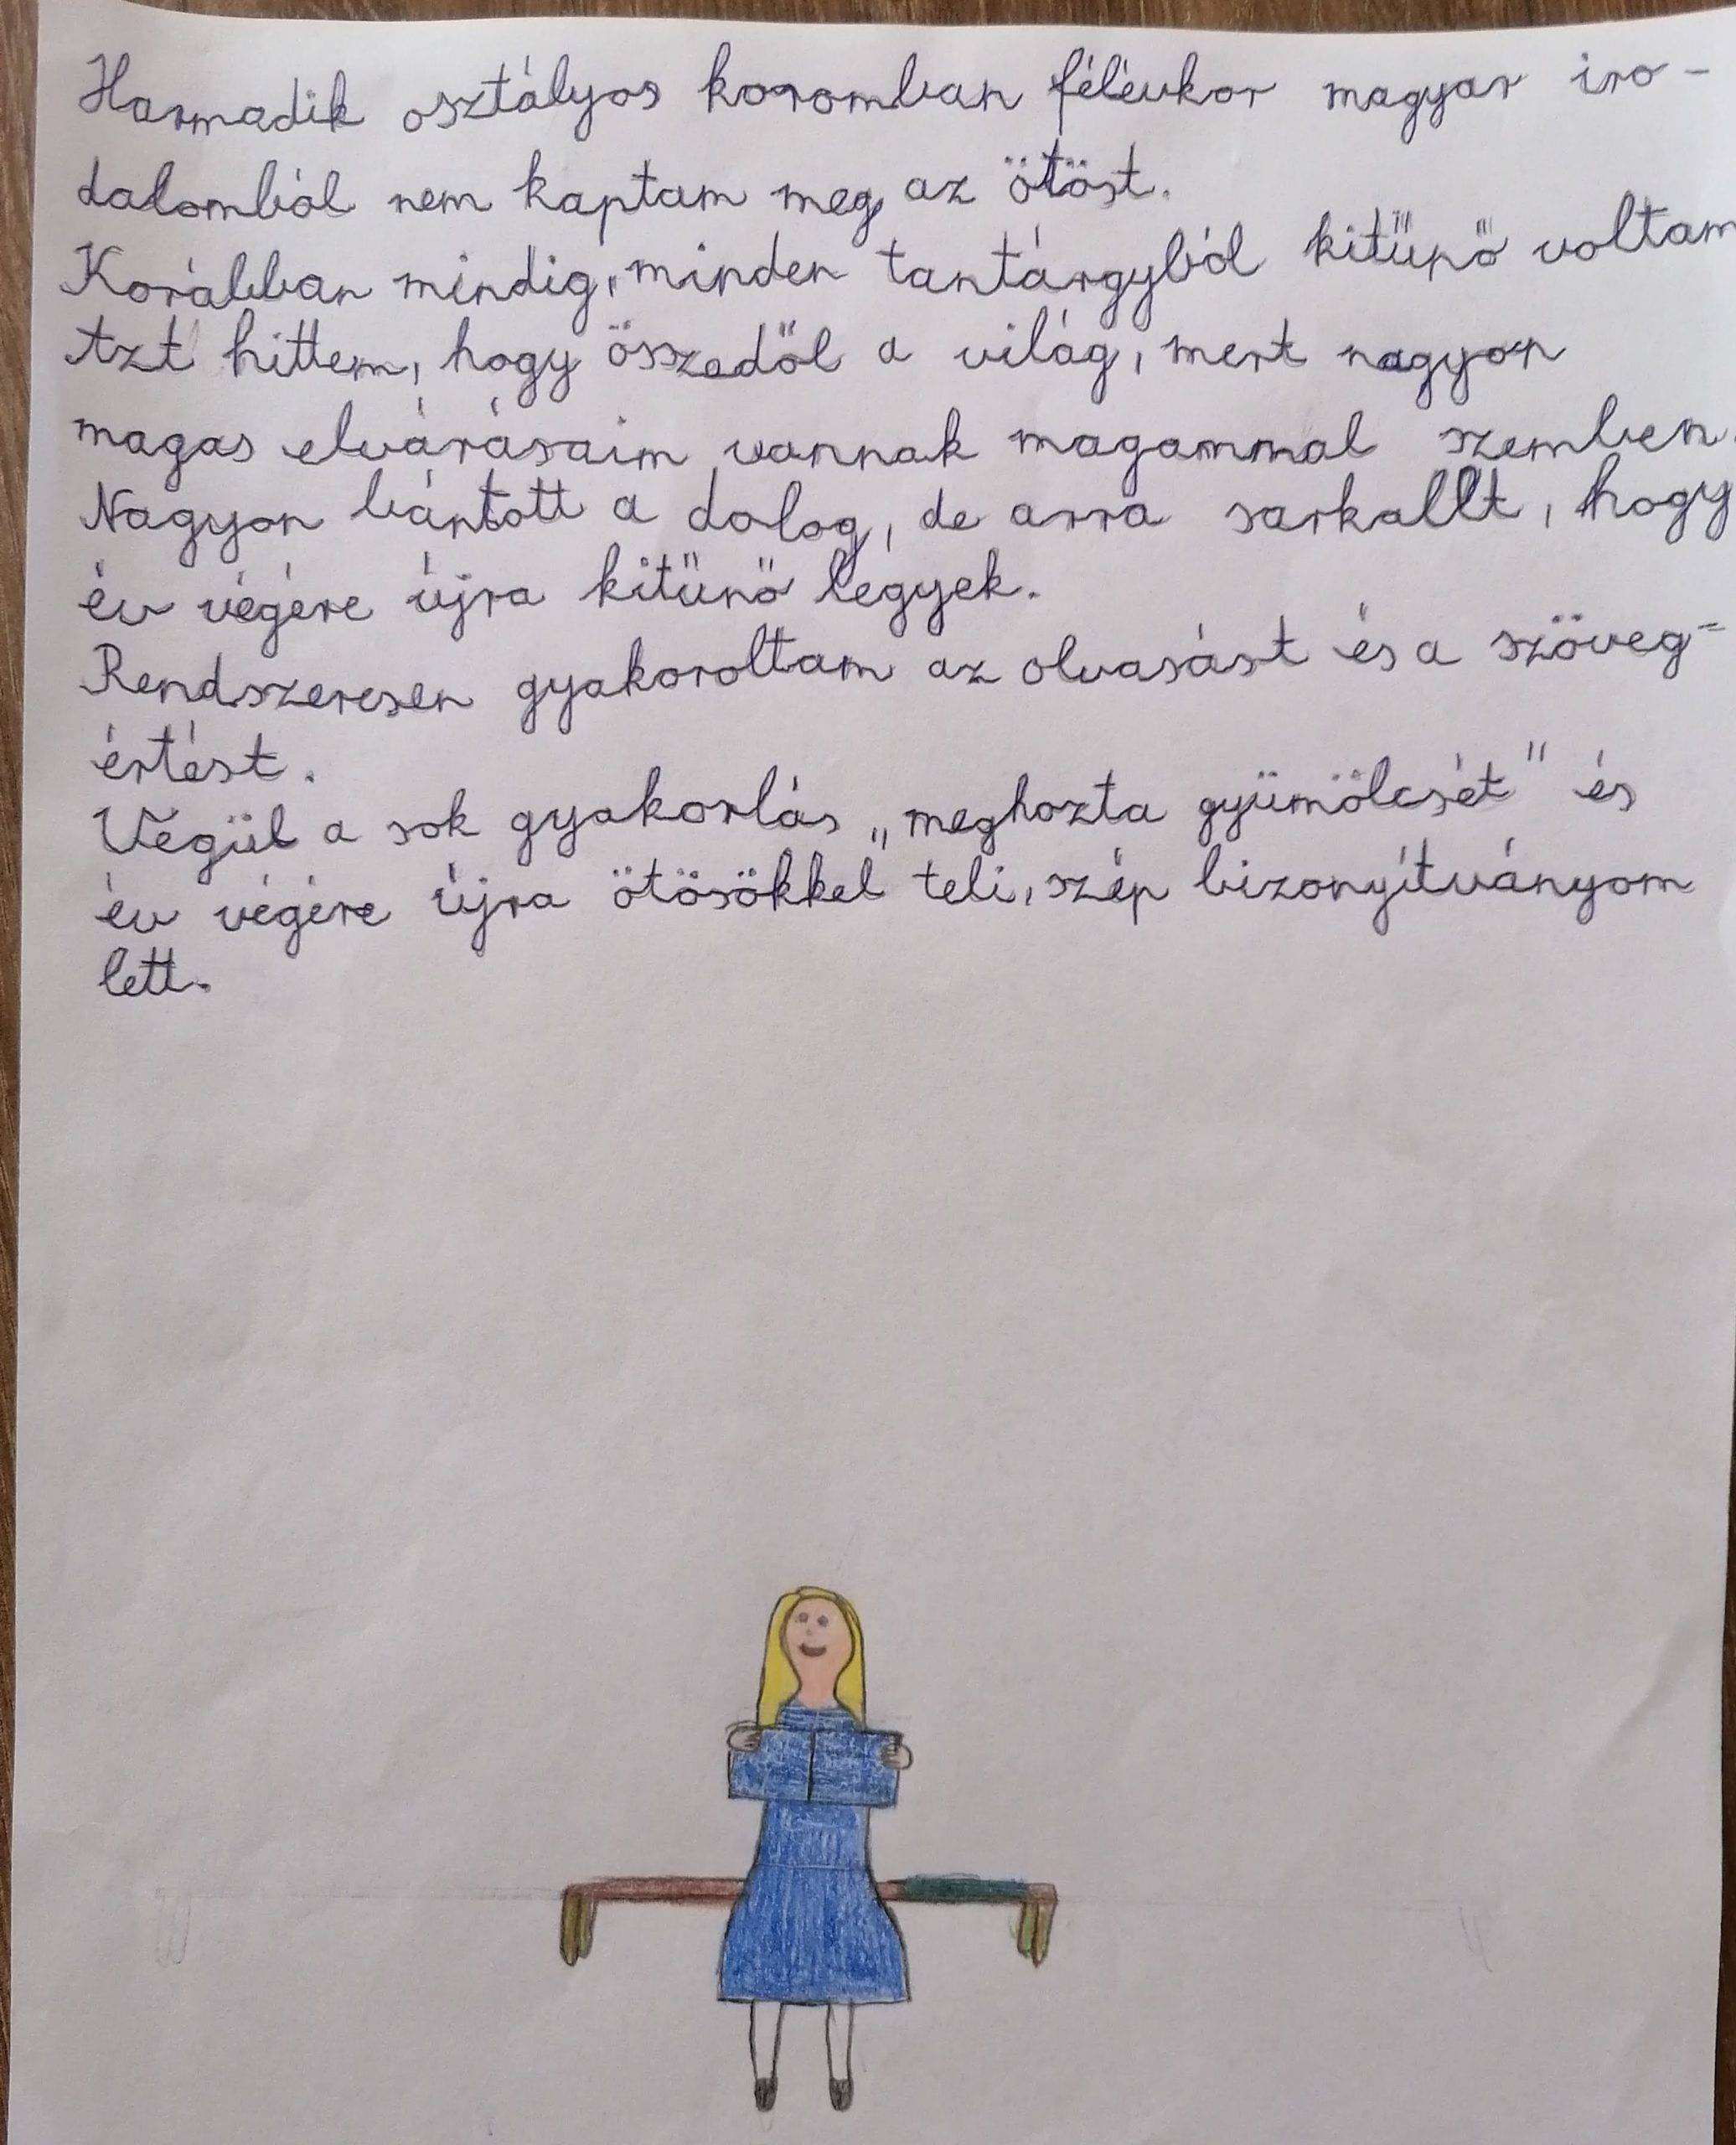 Harmadik osztályos koromban félévkor magyar iro-
dalomból nem kaptam meg az ötöst.
Korábban mindig, minden tantárgyból kitűnő voltam
Azt hittem, hogy összedől a világ, mert nagyon
magas elvárásaim vannak magammal szemben.
Nagyon bántott a dolog, de arra sarkallt, hogy
év végére újra kitűnő legyek.
Rendszeresen gyakoroltam az olvasást és a szöveg=
értést.
Végül a sok gyakorlás „meghozta gyümölcsét" és
év végére újra ötösökkel teli, szép bizonyítványom
lett.